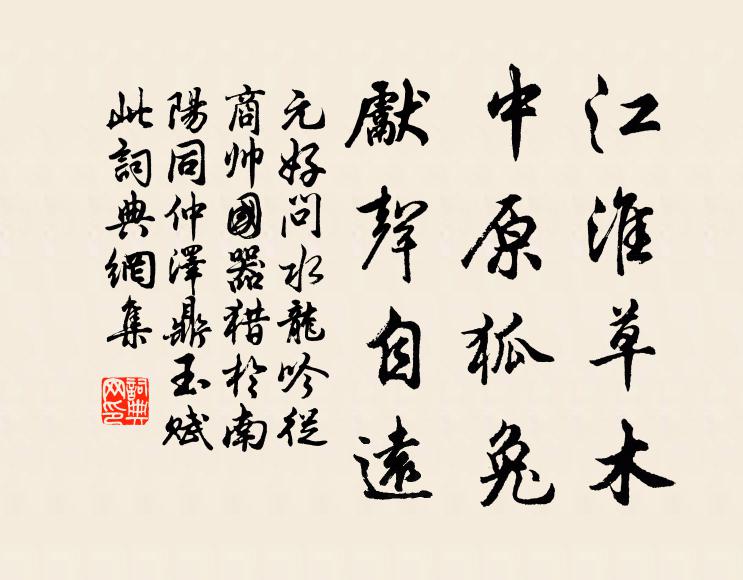 江淮草木
中原狐兔
獻聲自遠
元好問水龍吟從
商帅國器猎於南
陽同仲澤鼎玉赋
此詞典網集
詞典网印